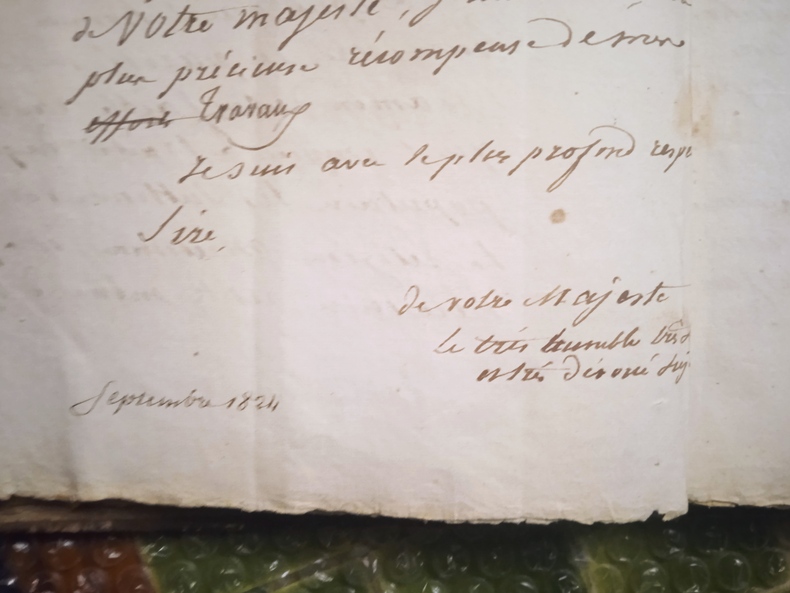 de Votre majesté, j'
plus précieuse récompense de mes
efforts Travaux
Je suis avec le plus profond respe
Sire,
de votre Majesté
le très humble très
et très dévoué suj
Septembre 1824